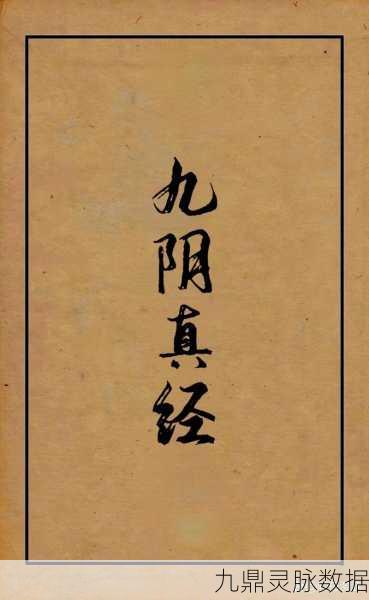 九阴真经
九鼎灵脉数据